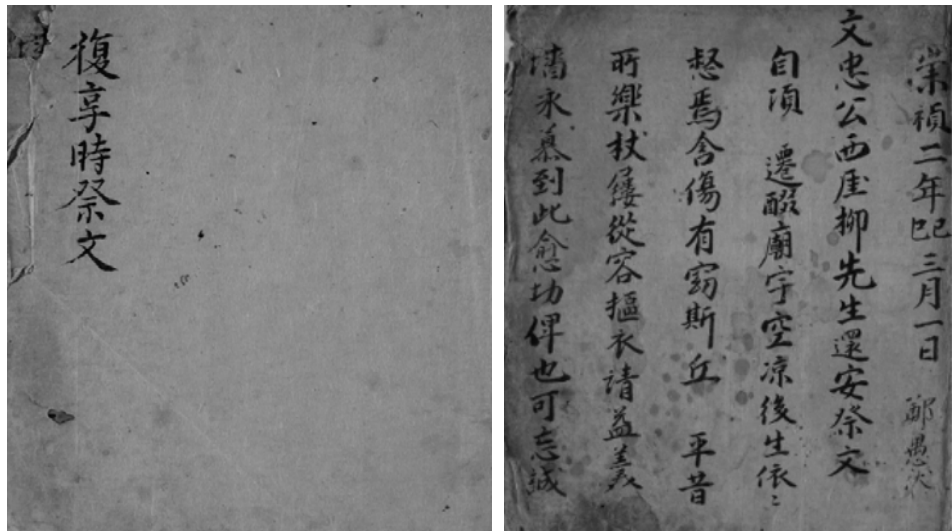 復享時祭文
崇禎二年己巳三月一日 鄭愚伏
文忠公西厓柳先生還安祭文
自頃 遷醊廟宇空凉後生依〻
愁焉含傷有窈斯丘 平昔
所樂杖屨從容摳衣請益羹
墻永慕到此愈切俾也可忘誠